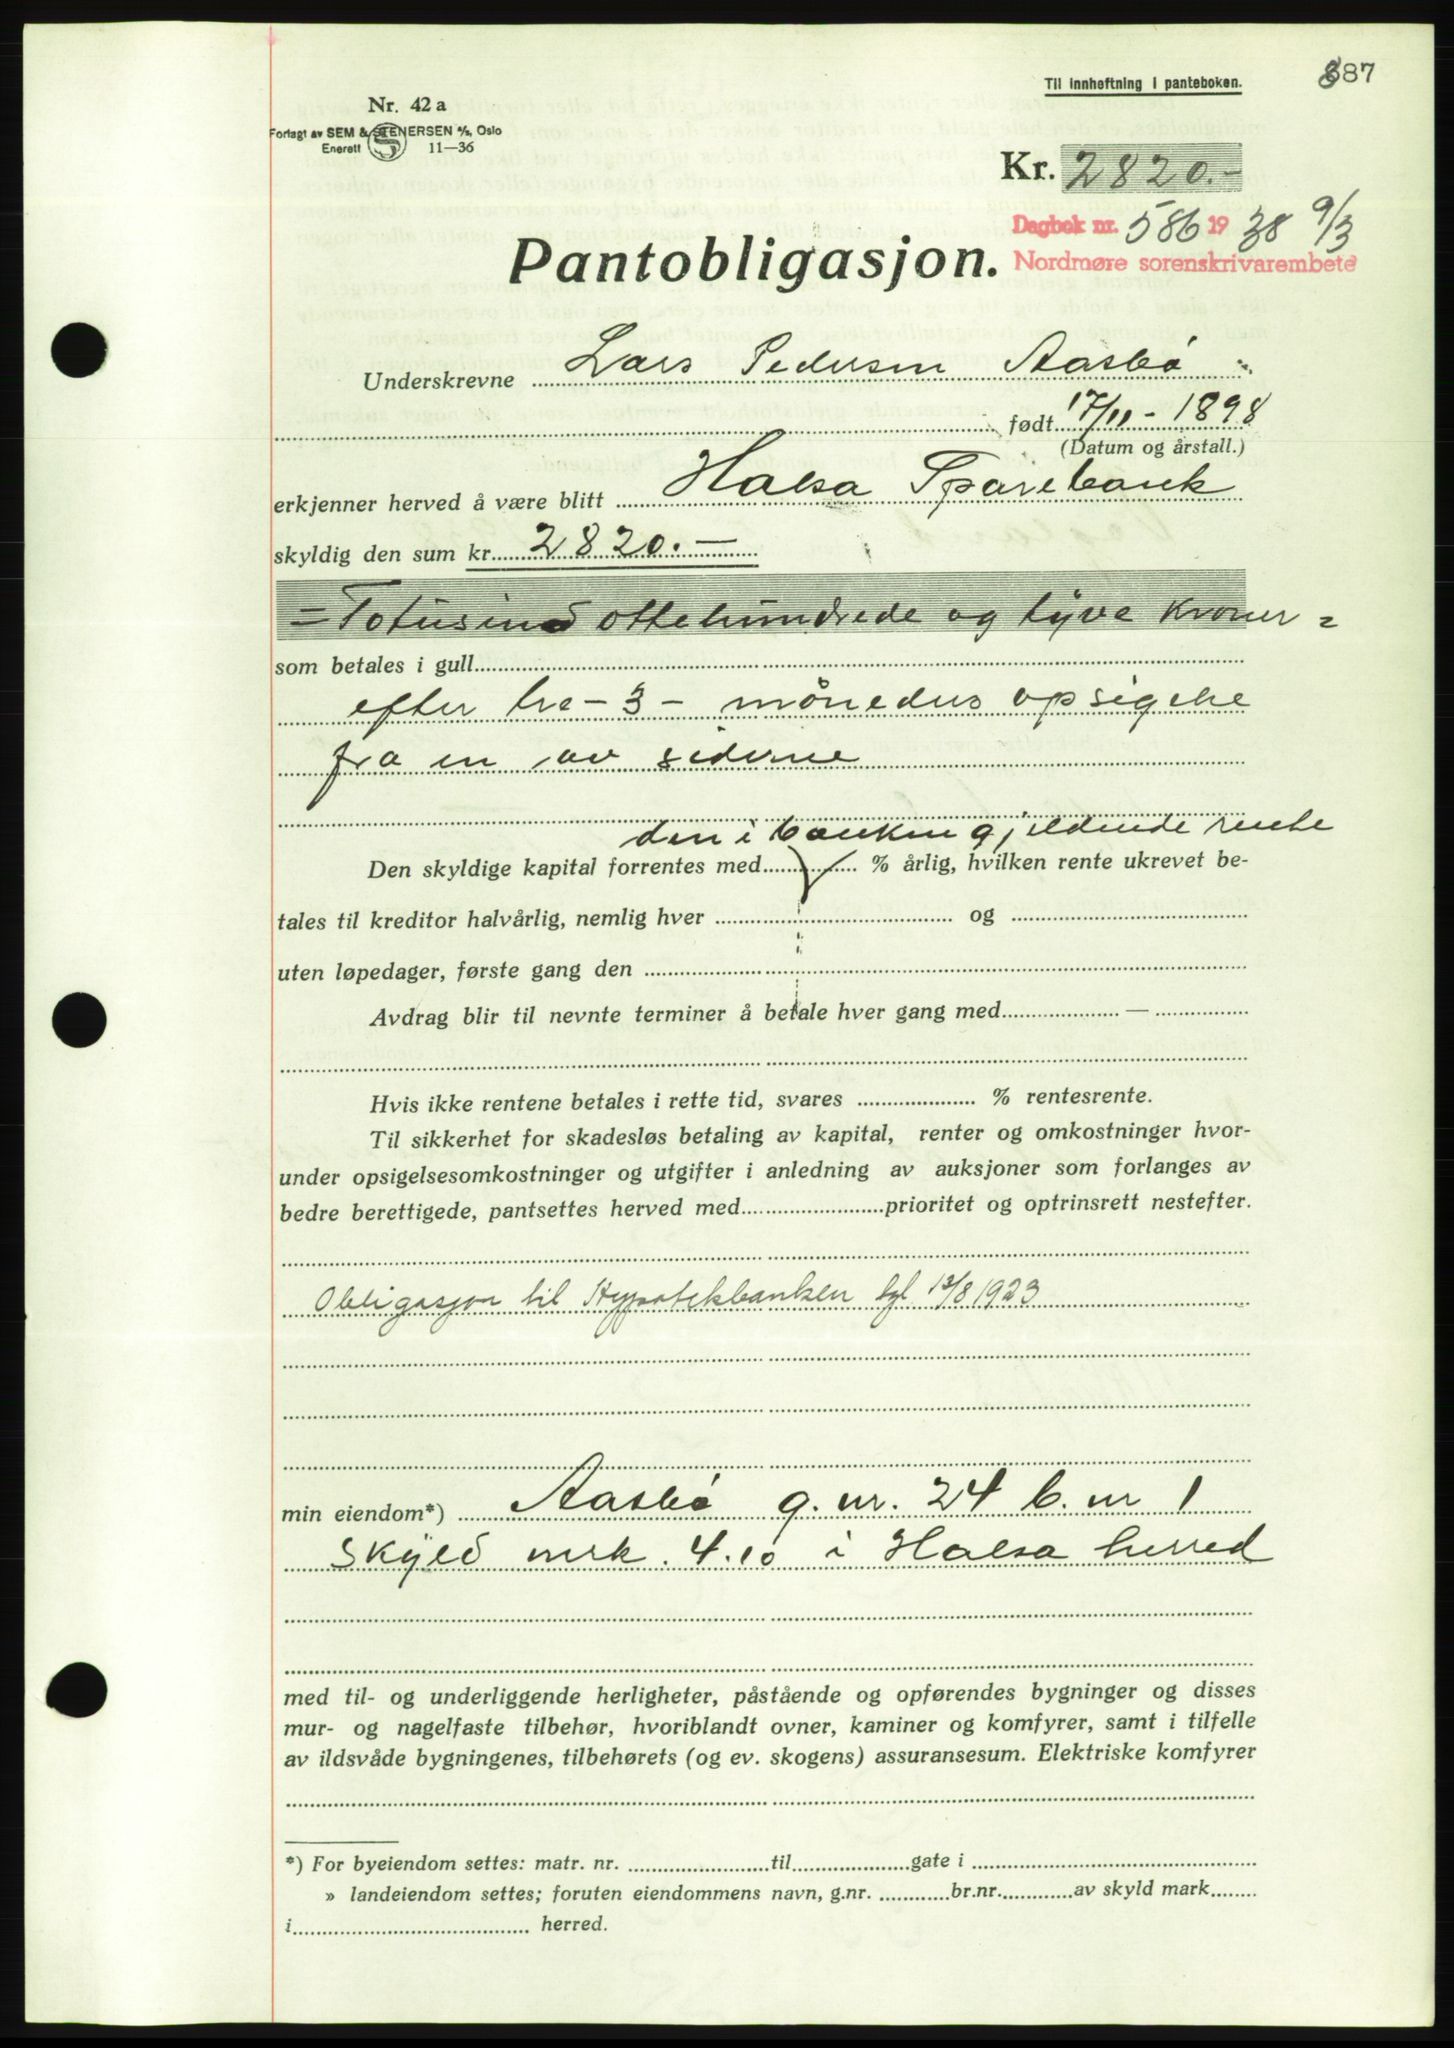 Til innheftning i panteboken.
387
Nr. 42 a
Forlagt av SEM & STENERSEN A/S, Oslo
Enerett 11—36
Kr. 2820.-
Dagbok nr. 586 1938 9/3
Nordmøre sorenskrivarembete
Pantobligasjon.
Underskrevne Lars Pedersen Aasbø
født 17/11 - 1898
(Datum og årstall.)
erkjenner herved å være blitt Halsa Sparebank
skyldig den sum kr. 2820.—
= Totusind ottehundrede og tyve kroner =
som betales i gull
efter tre - 3 - måneders opsigelse
fra en av siderne
den i banken gjeldende rente
Den skyldige kapital forrentes med % årlig, hvilken rente ukrevet be-
tales til kreditor halvårlig, nemlig hver og
uten løpedager, første gang den
Avdrag blir til nevnte terminer å betale hver gang med —
Hvis ikke rentene betales i rette tid, svares % rentesrente.
Til sikkerhet for skadesløs betaling av kapital, renter og omkostninger hvor-
under opsigelsesomkostninger og utgifter i anledning av auksjoner som forlanges av
bedre berettigede, pantsettes herved med prioritet og optrinsrett nestefter.
Obligasjon til Hypotekbanken tgl. 13/8 1923
min eiendom*) Aasbø g. nr. 24 b. nr 1
Skyld mrk. 4.10 i Halsa herred
med til- og underliggende herligheter, påstående og opførendes bygninger og disses
mur- og nagelfaste tilbehør, hvoriblandt ovner, kaminer og komfyrer, samt i tilfelle
av ildsvåde bygningenes, tilbehørets (og ev. skogens) assuransesum. Elektriske komfyrer
*) For byeiendom settes: matr. nr. til gate i
» landeiendom settes; foruten eiendommens navn, g.nr. br.nr. av skyld mark
i herred.